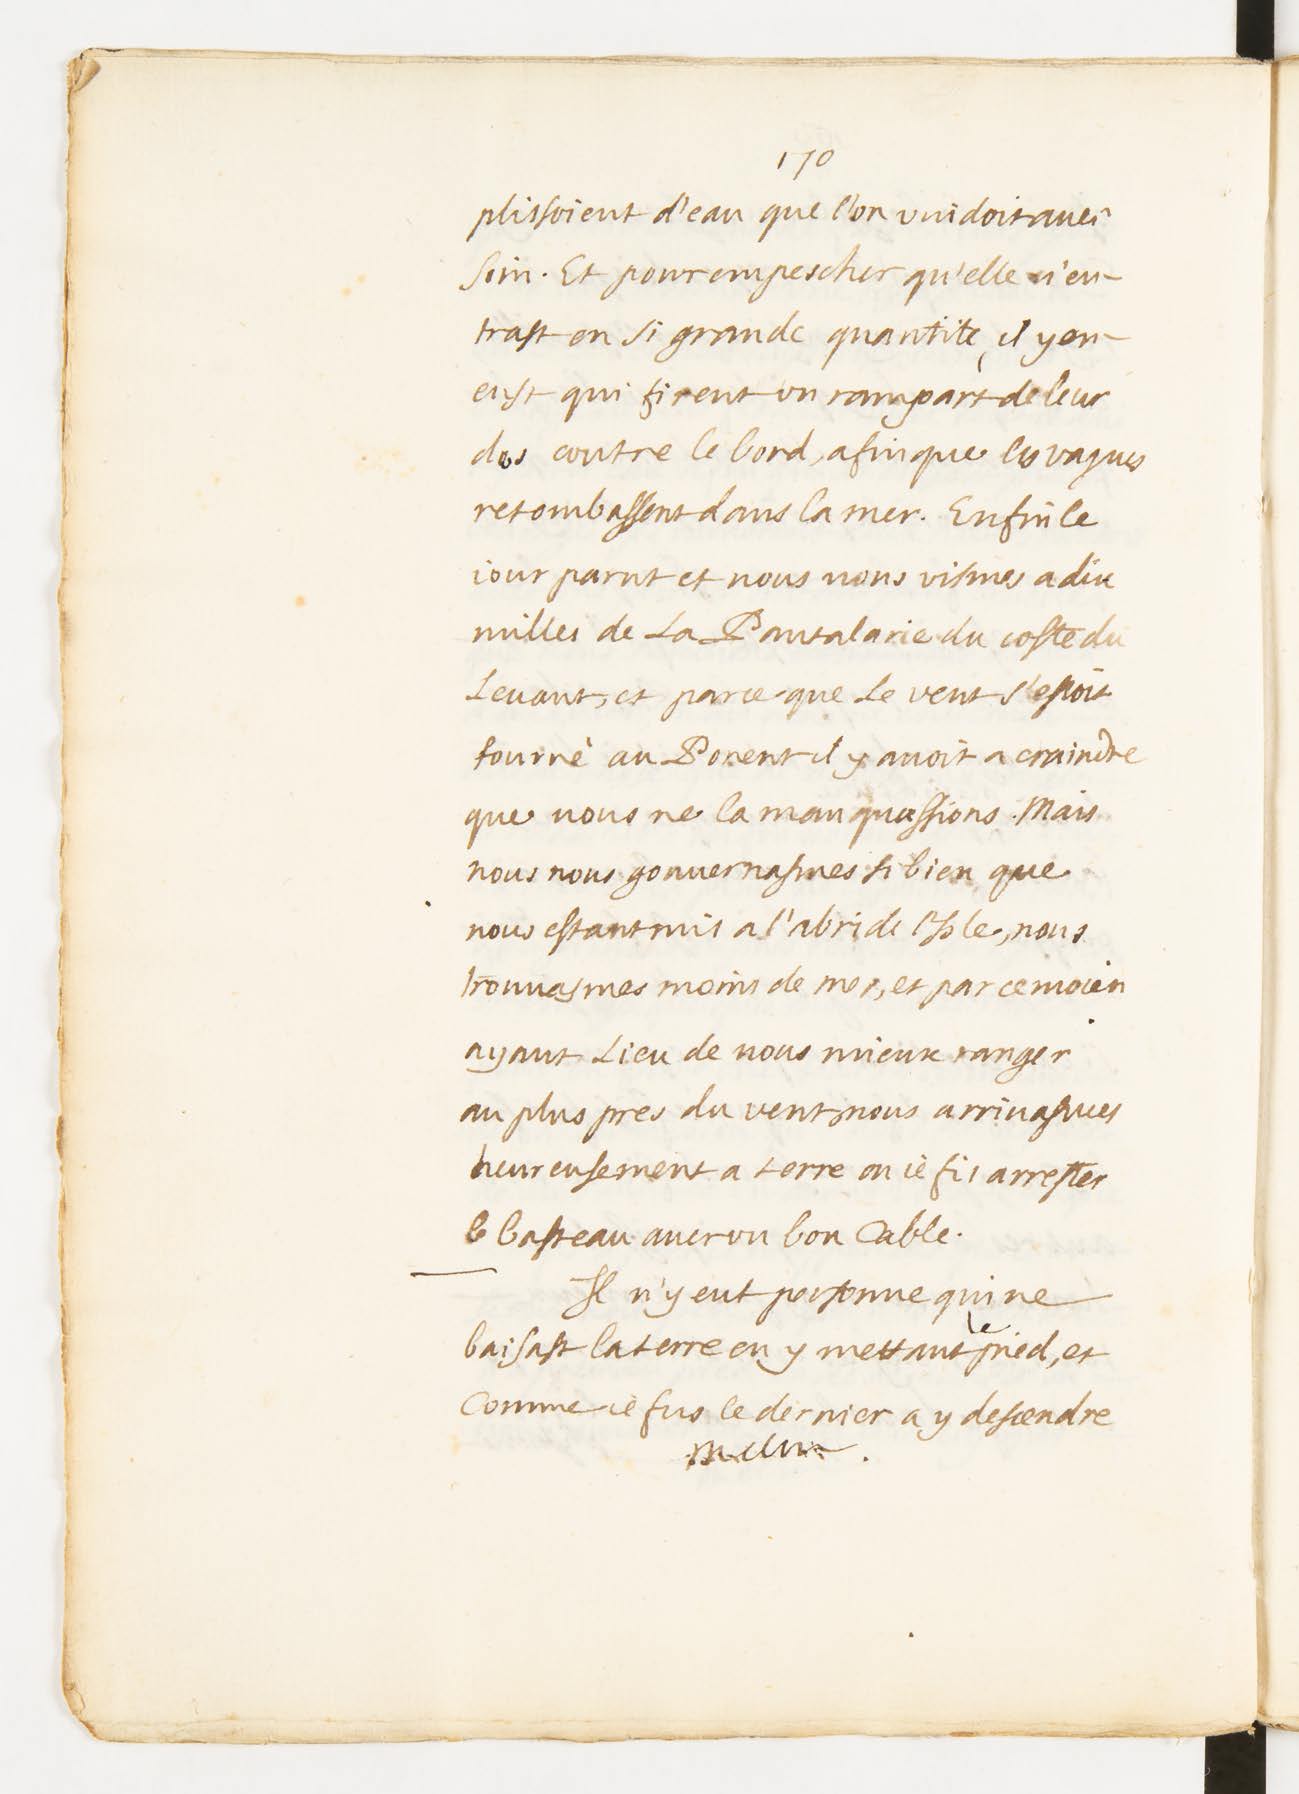 170
plissoient d'eau que l'on vuidoit avec
soin. Et pour empescher qu'elle n'en-
trast en si grande quantité, il y en
eust qui firent un rampart de leur
dos contre le bord, afin que les vagues
retombassent dans la mer. Enfin le
iour parut et nous nous vismes a dix
milles de La Pantalarie du costé du
Levant, et parce que Le vent s'estoit
tourné au Ponent il y auoit a craindre
que nous ne la manquassions. Mais
nous nous gouuernasmes si bien que
nous estant mis a l'abri de l'Isle, nous
trouuasmes moins de mer, et par ce moien
ayant Lieu de nous mieux ranger
au plus pres du vent, nous arriuasmes
heureusement a terre ou ie fis arrester
le basteau auec vn bon Cable.
Il n'y eut personne qui ne
baisast la terre en y mettant le pied, et
Comme ie fus le dernier a y descendre